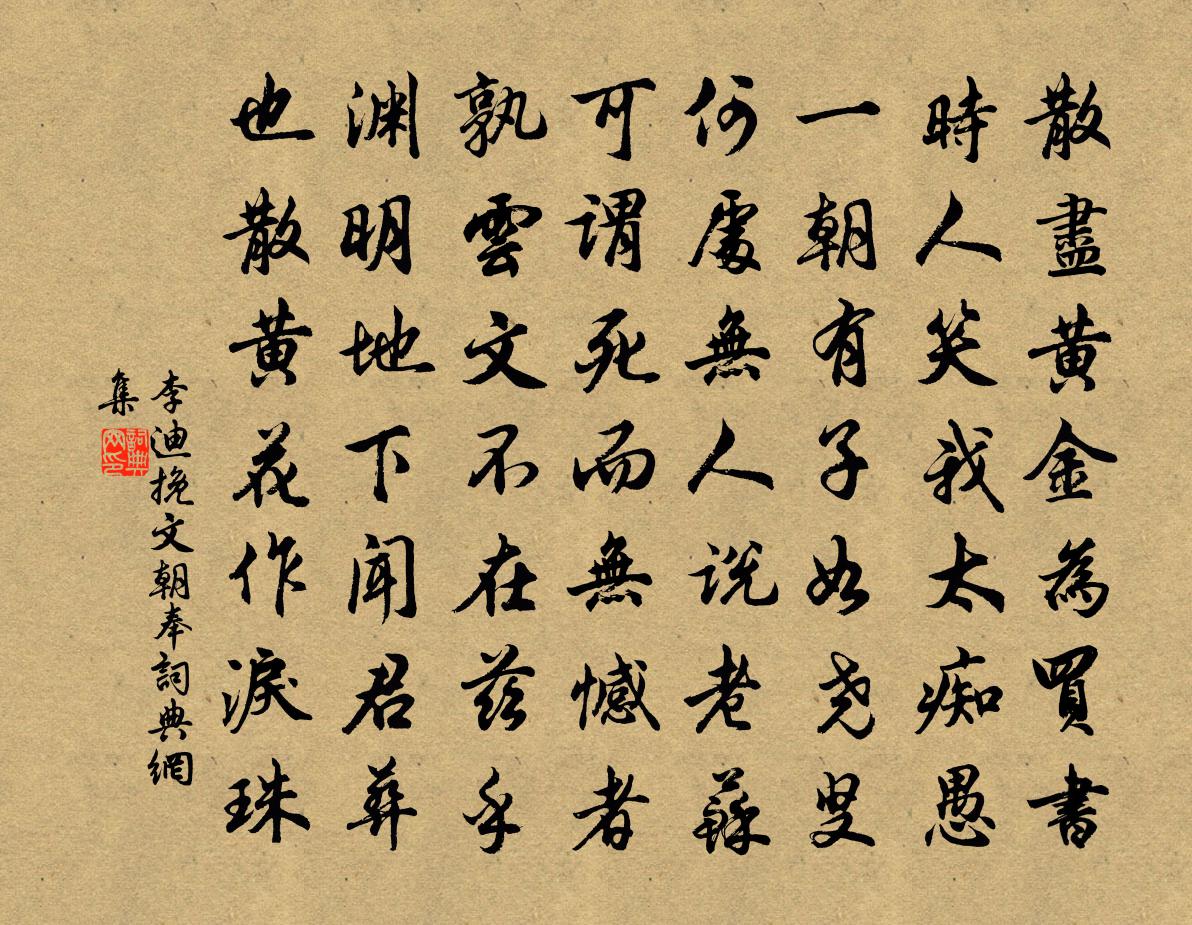 散盡黄金為買書
時人笑我太痴愚
一朝有子如堯叟
何處無人説老蘇
可謂死而無憾者
孰雲文不在兹乎
渊明地下聞君葬
也散黄花作淚珠
李迪挽文朝奉詞典網
集
詞典網印